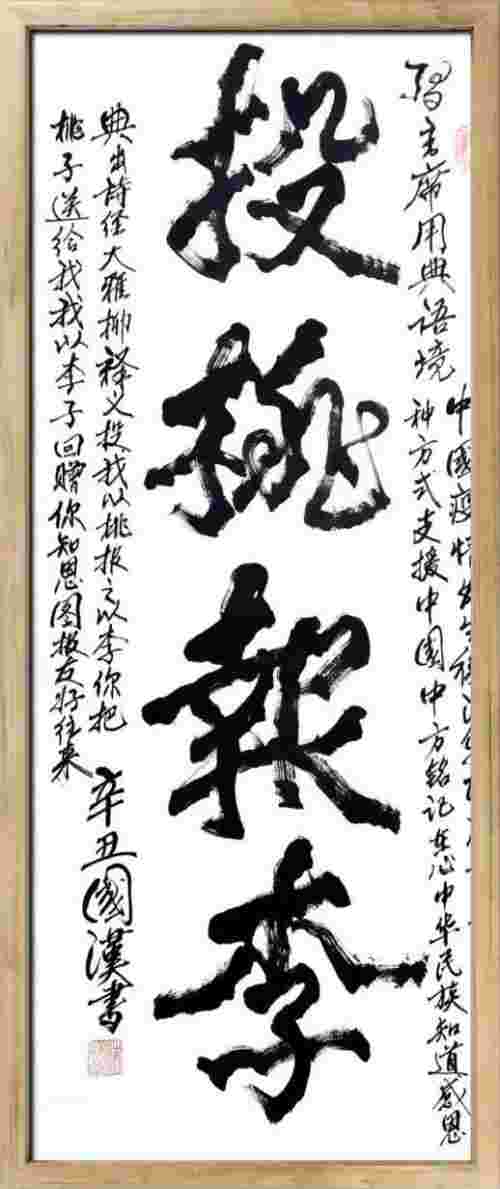 习主席用典语境
中国疫情发生
种方式支援中国中方铭记在心中华民族知道感恩
投桃報李
典出诗经大雅抑释义投我以桃报之以李你把
桃子送给我我以李子回赠你知恩图报友好往来
辛丑國漢書